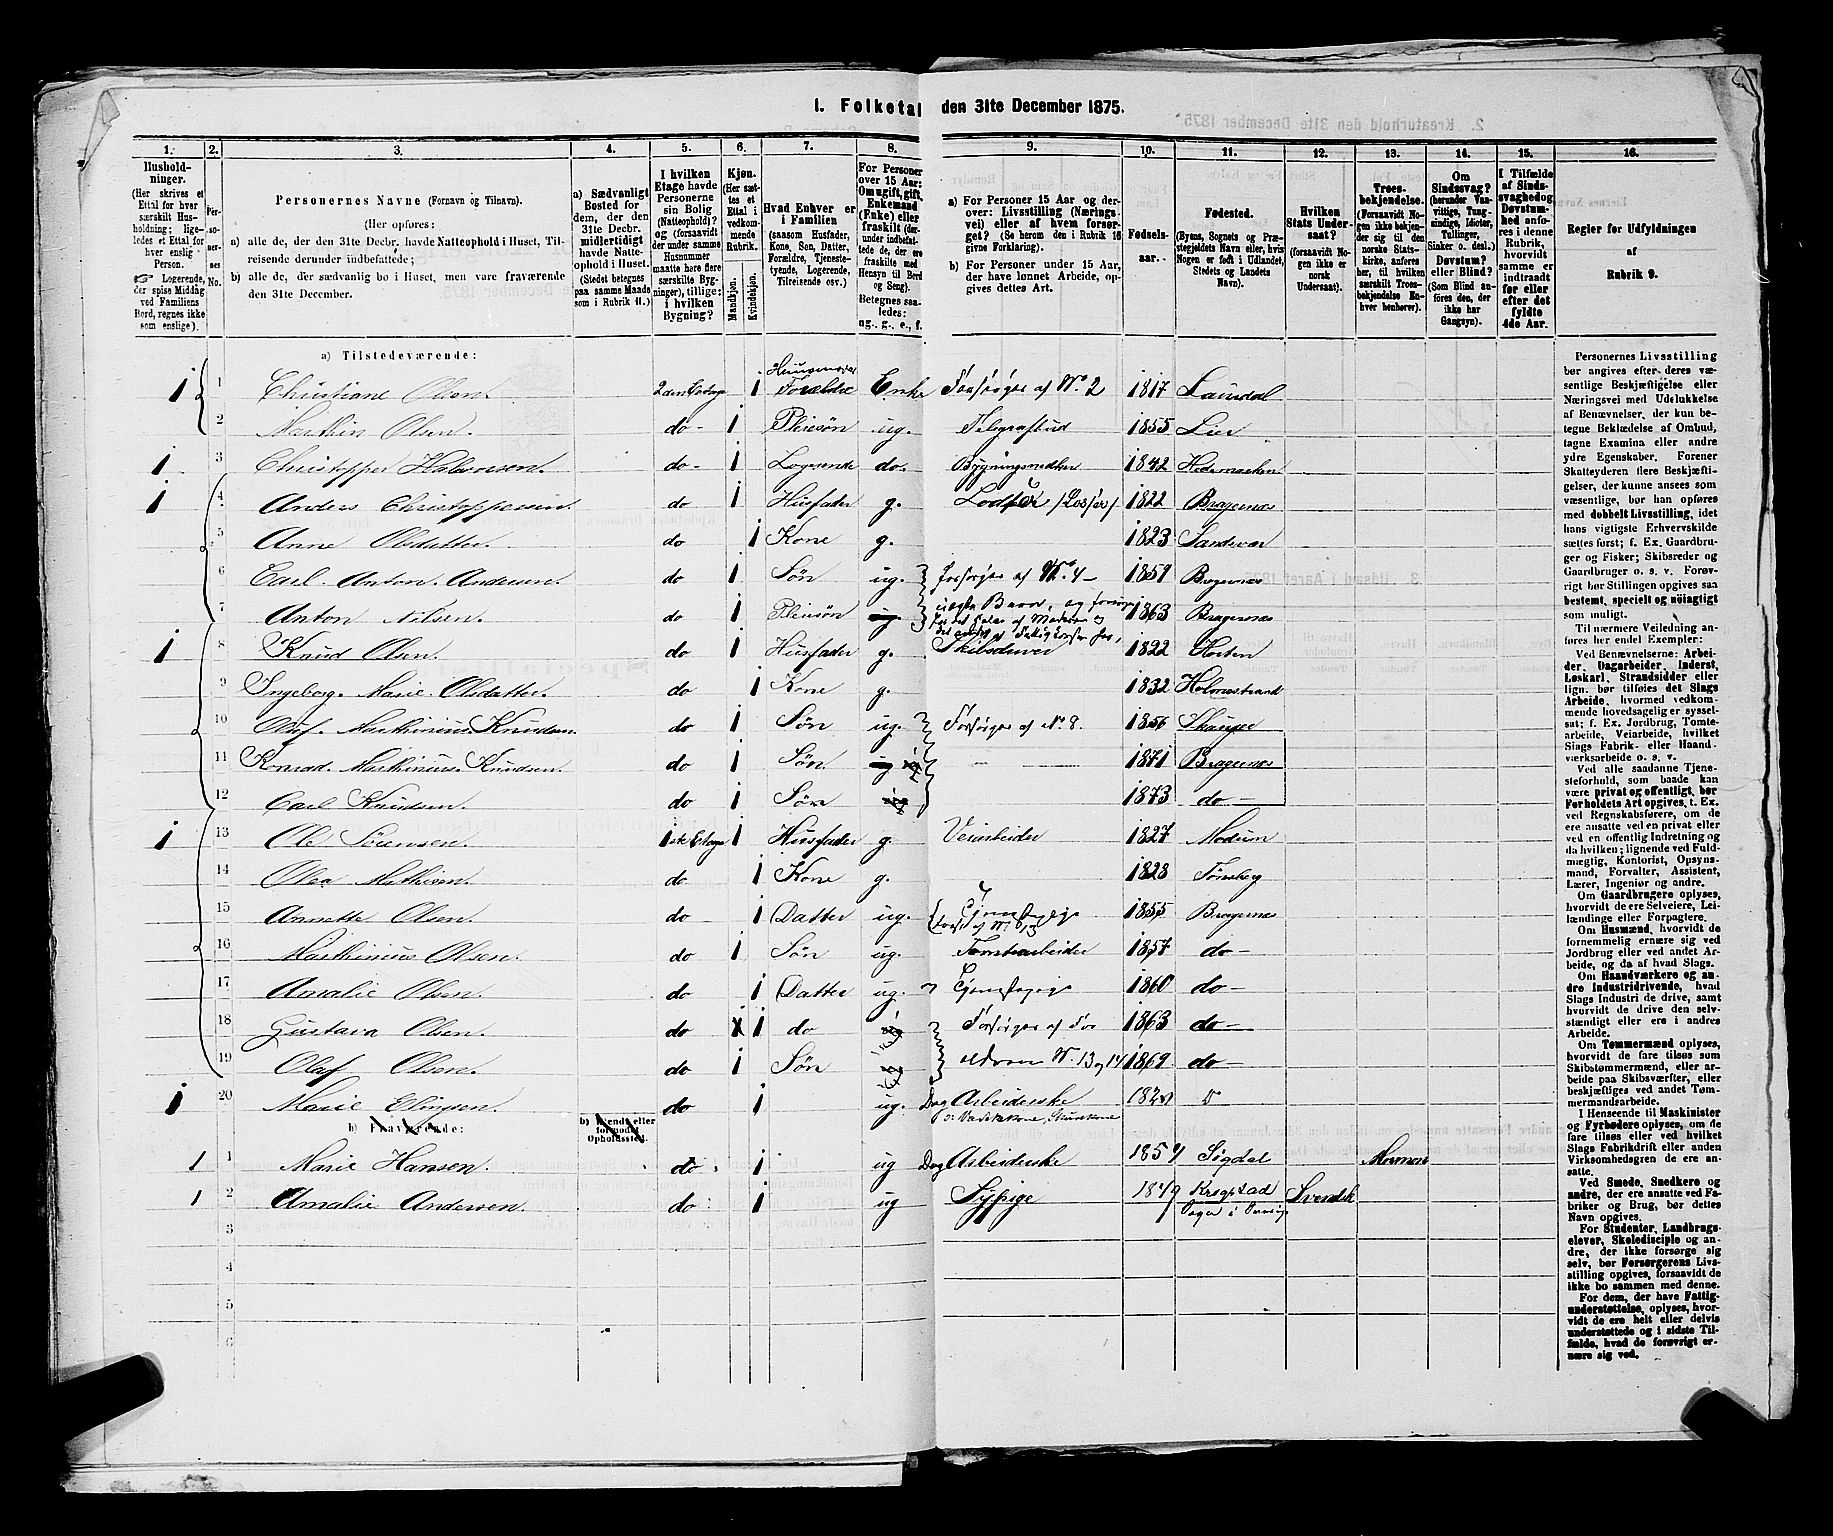 1. Folketal den 31te December 1875.
2. Kreaturhold den 31te December 1875.
1. 2. 3. 4. 5. 6. 7. 8. 9. 10. 11. 12. 13. 14. 15. 16.
Hushold-
ninger.
(Her skrives et
Ettal for hver
særskilt Hus-
holdning; lige-
ledes et Ettal for
hver enslig
Person.
☞ Logerende,
der spise Middag
ved Familiens
Bord, regnes ikke
som enslige).
Per-
so-
ner-
nes
No.
Personernes Navne (Fornavn og Tilnavn).
(Her opføres:
a) alle de, der den 31te Decbr. havde Natteophold i Huset, Til-
reisende derunder indbefattede;
b) alle de, der sædvanlig bo i Huset, men vare fraværende
den 31te December.
a) Sædvanligt
Bosted for
dem, der den
31te Decbr.
midlertidigt
havde Natte-
ophold i Huset.
(Stedet betegnes
paa samme Maade
som i Rubrik 11.)
I hvilken
Etage havde
Personerne
sin Bolig
(Natteophold)?
og (forsaavidt
der under samme
Husnummer
maatte høre flere
særskilte Byg-
ninger), tillige:
i hvilken
Bygning?
Kjøn.
(Her sæt-
tes et
Ettal i
vedkom-
mende
Rubrik.
Mandkjøn.
Kvindekjøn.
Hvad Enhver er
i Familien
(saasom Husfader,
Kone, Søn, Datter,
Forældre, Tjeneste-
tyende, Logerende,
Tilreisende osv.)
For Personer
over 15 Aar:
Om ugift, gift,
Enkemand
(Enke) eller
fraskilt (der-
under indbefat-
tede de, der ere
fraskilte med
Hensyn til Bord
og Seng).
Betegnes saa-
ledes:
ug., g., e., f.
a) For Personer 15 Aar og der-
over: Livsstilling (Nærings-
vei) eller af hvem forsør-
get? (Se herom den i Rubrik 16
givne Forklaring).
b) For Personer under 15 Aar,
der have lønnet Arbeide, op-
gives dettes Art.
Fødsels-
aar.
Fødested.
(Byens, Sognets og Præ-
stegjeldets Navn eller, hvis
Nogen er født i Udlandet,
Stedets og Landets
Navn).
Hvilken
Stats Under-
saat?
(forsaavidt No-
gen ikke er
norsk
Undersaat).
Troes-
bekjendelse.
(Forsaavidt No-
gen ikke bekjen-
der sig til den
norske Stats-
kirke, anføres
her, til hvilken
særskilt Troes-
bekjendelse En-
hver henhører).
Om
Sindssvag?
(herunder Van-
vittige, Tung-
sindige, Idioter,
Tullinger,
Sinker o. desl.)
Døvstum?
eller Blind?
(Som Blind an-
føres den, der
ikke har
Gangsyn).
I Tilfælde
af Sinds-
svaghed og
Døvstum-
hed anfø-
res i denne
Rubrik,
hvorvidt
samme er
indtraadt
før eller
efter det
fyldte
4de Aar.
Regler for Udfyldningen
af
Rubrik 9.
a) Tilstedeværende:
1 1 Christiane Olsen. 2den Etage 1 Huusmoder Forældre Enke Forsørges af No 2 1817 Laurdal
2 Marthin Olsen. do 1 Pleiesøn ug. Telegrafbud 1855 Lier
1 3 Christopher Halvorsen do 1 Logerende do. 1842 Hedemarken
1 4 Anders Christophersen do 1 Husfader g. 1822 Bragernes
5 Anne Olsdatter. do 1 Kone g. 1823 Sandsvær
6 Carl Anton Andersen. do 1 Søn ug. forsørges af No 4 1859 Bragernes
7 Anton Nilsen. do 1 Pleiesøn ug. uægte Barn, og 1863 Bragernes
1 8 Knud Olsen. do 1 Husfader g. 1822 Horten
9 Ingeborg Marie Olsdatter. do 1 Kone g. 1832 Holmestrand
10 Olaf Marthinius Knudsen. do 1 Søn ug. Forsørges af No 8. 1856 Skauger
11 Konrad Marthinius Knudsen. do 1 Søn ug 1871 Bragernes
12 Carl Knudsen. do 1 Søn ug 1873 do
1 13 Ole Sørensen 1ste Etage 1 Husfader g. Veiarbeider 1827 Modum
14 Olea Mathisen. do 1 Kone g. 1828 Tønsberg
15 Annette Olsen. do 1 Datter ug. Tjenestepige 1855 Bragernes
fors. af No 13
16 Marthinius Olsen. do 1 Søn ug. Tomtearbeider 1857 do
17 Amalie Olsen. do 1 Datter ug. Tjenestepige 1860 do
18 Gustava Olsen. do 1 do ug Forsørges af For 1863 do
19 Olaf Olsen. do 1 Søn ug ældrene No 13 og 14 1869 do
1 20 Marie Elingsen. do 1 ug. Dag Arbeiderske
Vadskekone, Skurekone
b) Fraværende:
b) Kjendt eller
formodet
Opholdssted.
1 1 Marie Hansen. do 1 ug Dag Arbeiderske Sigdal Mormon
1 2 Amalie Andersen. do 1 ug Sypige 1849 Krogstad Svensk
3
4
5
6
Personernes Livsstilling
bør angives efter deres væ-
sentlige Beskjæftigelse eller
Næringsvei med Udelukkelse
af Benævnelser, der kun be-
tegne Beklædelse af Ombud,
tagne Examina eller andre
ydre Egenskaber. Forener
Skatteyderen flere Beskjæfti-
gelser, der kunne ansees som
væsentlige, bør han opføres
med dobbelt Livsstilling, idet
hans vigtigste Erhvervskilde
sættes først; f. Ex. Gaardbru-
ger og Fisker; Skibsreder og
Gaardbruger o. s. v. Forøv-
rigt bør Stillingen opgives saa
bestemt, specielt og nøiagtigt
som muligt.
Til nærmere Veiledning an-
føres her endel Exempler:
Ved Benævnelserne: Arbei-
der, Dagarbeider, Inderst,
Løskarl, Strandsidder eller
lign. bør tilføies det Slags
Arbeide, hvormed vedkom-
mende hovedsagelig er syssel-
sat; f. Ex. Jordbrug, Tomte-
arbeide, Veiarbeide, hvilket
Slags Fabrik- eller Haand-
værksarbeide o. s. v.
Ved alle saadanne Tjene-
steforhold, som baade kan
være privat og offentligt, bør
Forholdets Art opgives, t. Ex.
ved Regnskabsførere, om de
ere ansatte ved en privat eller
ved en offentlig Indretning og
da hvilken; lignende ved Fuld-
mægtig, Kontorist, Opsyns-
mand, Forvalter, Assistent,
Lærer, Ingeniør og andre.
Om Gaardbrugere oplyses,
hvorvidt de ere Selveiere, Lei-
lændinge eller Forpagtere.
Om Husmænd, hvorvidt de
fornemmelig ernære sig ved
Jordbrug eller ved andet Ar-
beide, og da af hvad Slags.
Om Haandværkere og an-
dre Industridrivende, hvad
Slags Industri de drive, samt
hvorvidt de drive den selv-
stændigt eller ere i andres
Arbeide.
Om Tømmermænd oplyses,
hvorvidt de fare tilsøs som
Skibstømmermænd, eller ar-
beide paa Skibsværfter, eller
beskjæftiges ved andet Tøm-
mermandsarbeide.
I Henseende til Maskinister
og Fyrbødere oplyses, om de
fare tilsøs eller ved hvilket
Slags Fabrikdrift eller anden
Virksomhedsgren de ere an-
satte.
Ved Smede, Snedkere og
andre, der ere ansatte ved Fa-
briker og Brug, bør dettes
Navn opgives.
For Studenter, Landbrugs-
elever, Skoledisciple og an-
dre, der ikke forsørge sig
selv, bør Forsørgerens Livs-
stilling opgives, forsaavidt de
ikke bo sammen med denne.
For dem, der have Fattig-
understøttelse, oplyses, hvor-
vidt de ere helt eller delvis
understøttede og i sidste Til-
fælde, hvad de forøvrigt er-
nære sig ved.